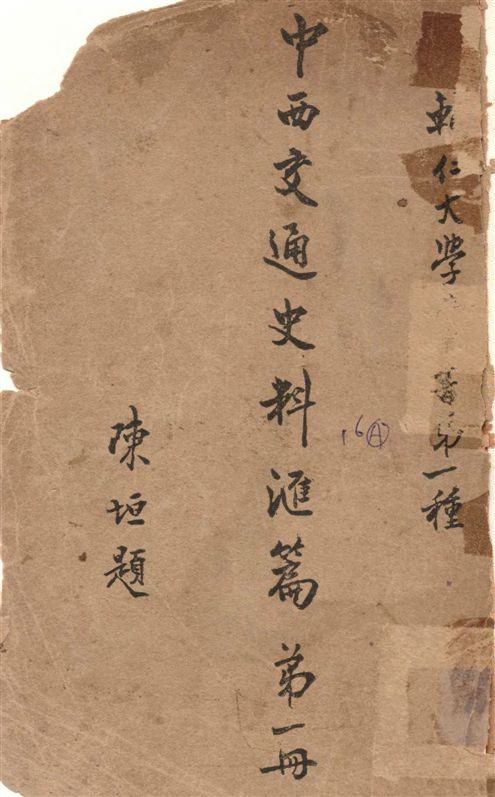 輔仁大學
第一種
中西交通史料滙篇 第一冊
16 A
陳垣題